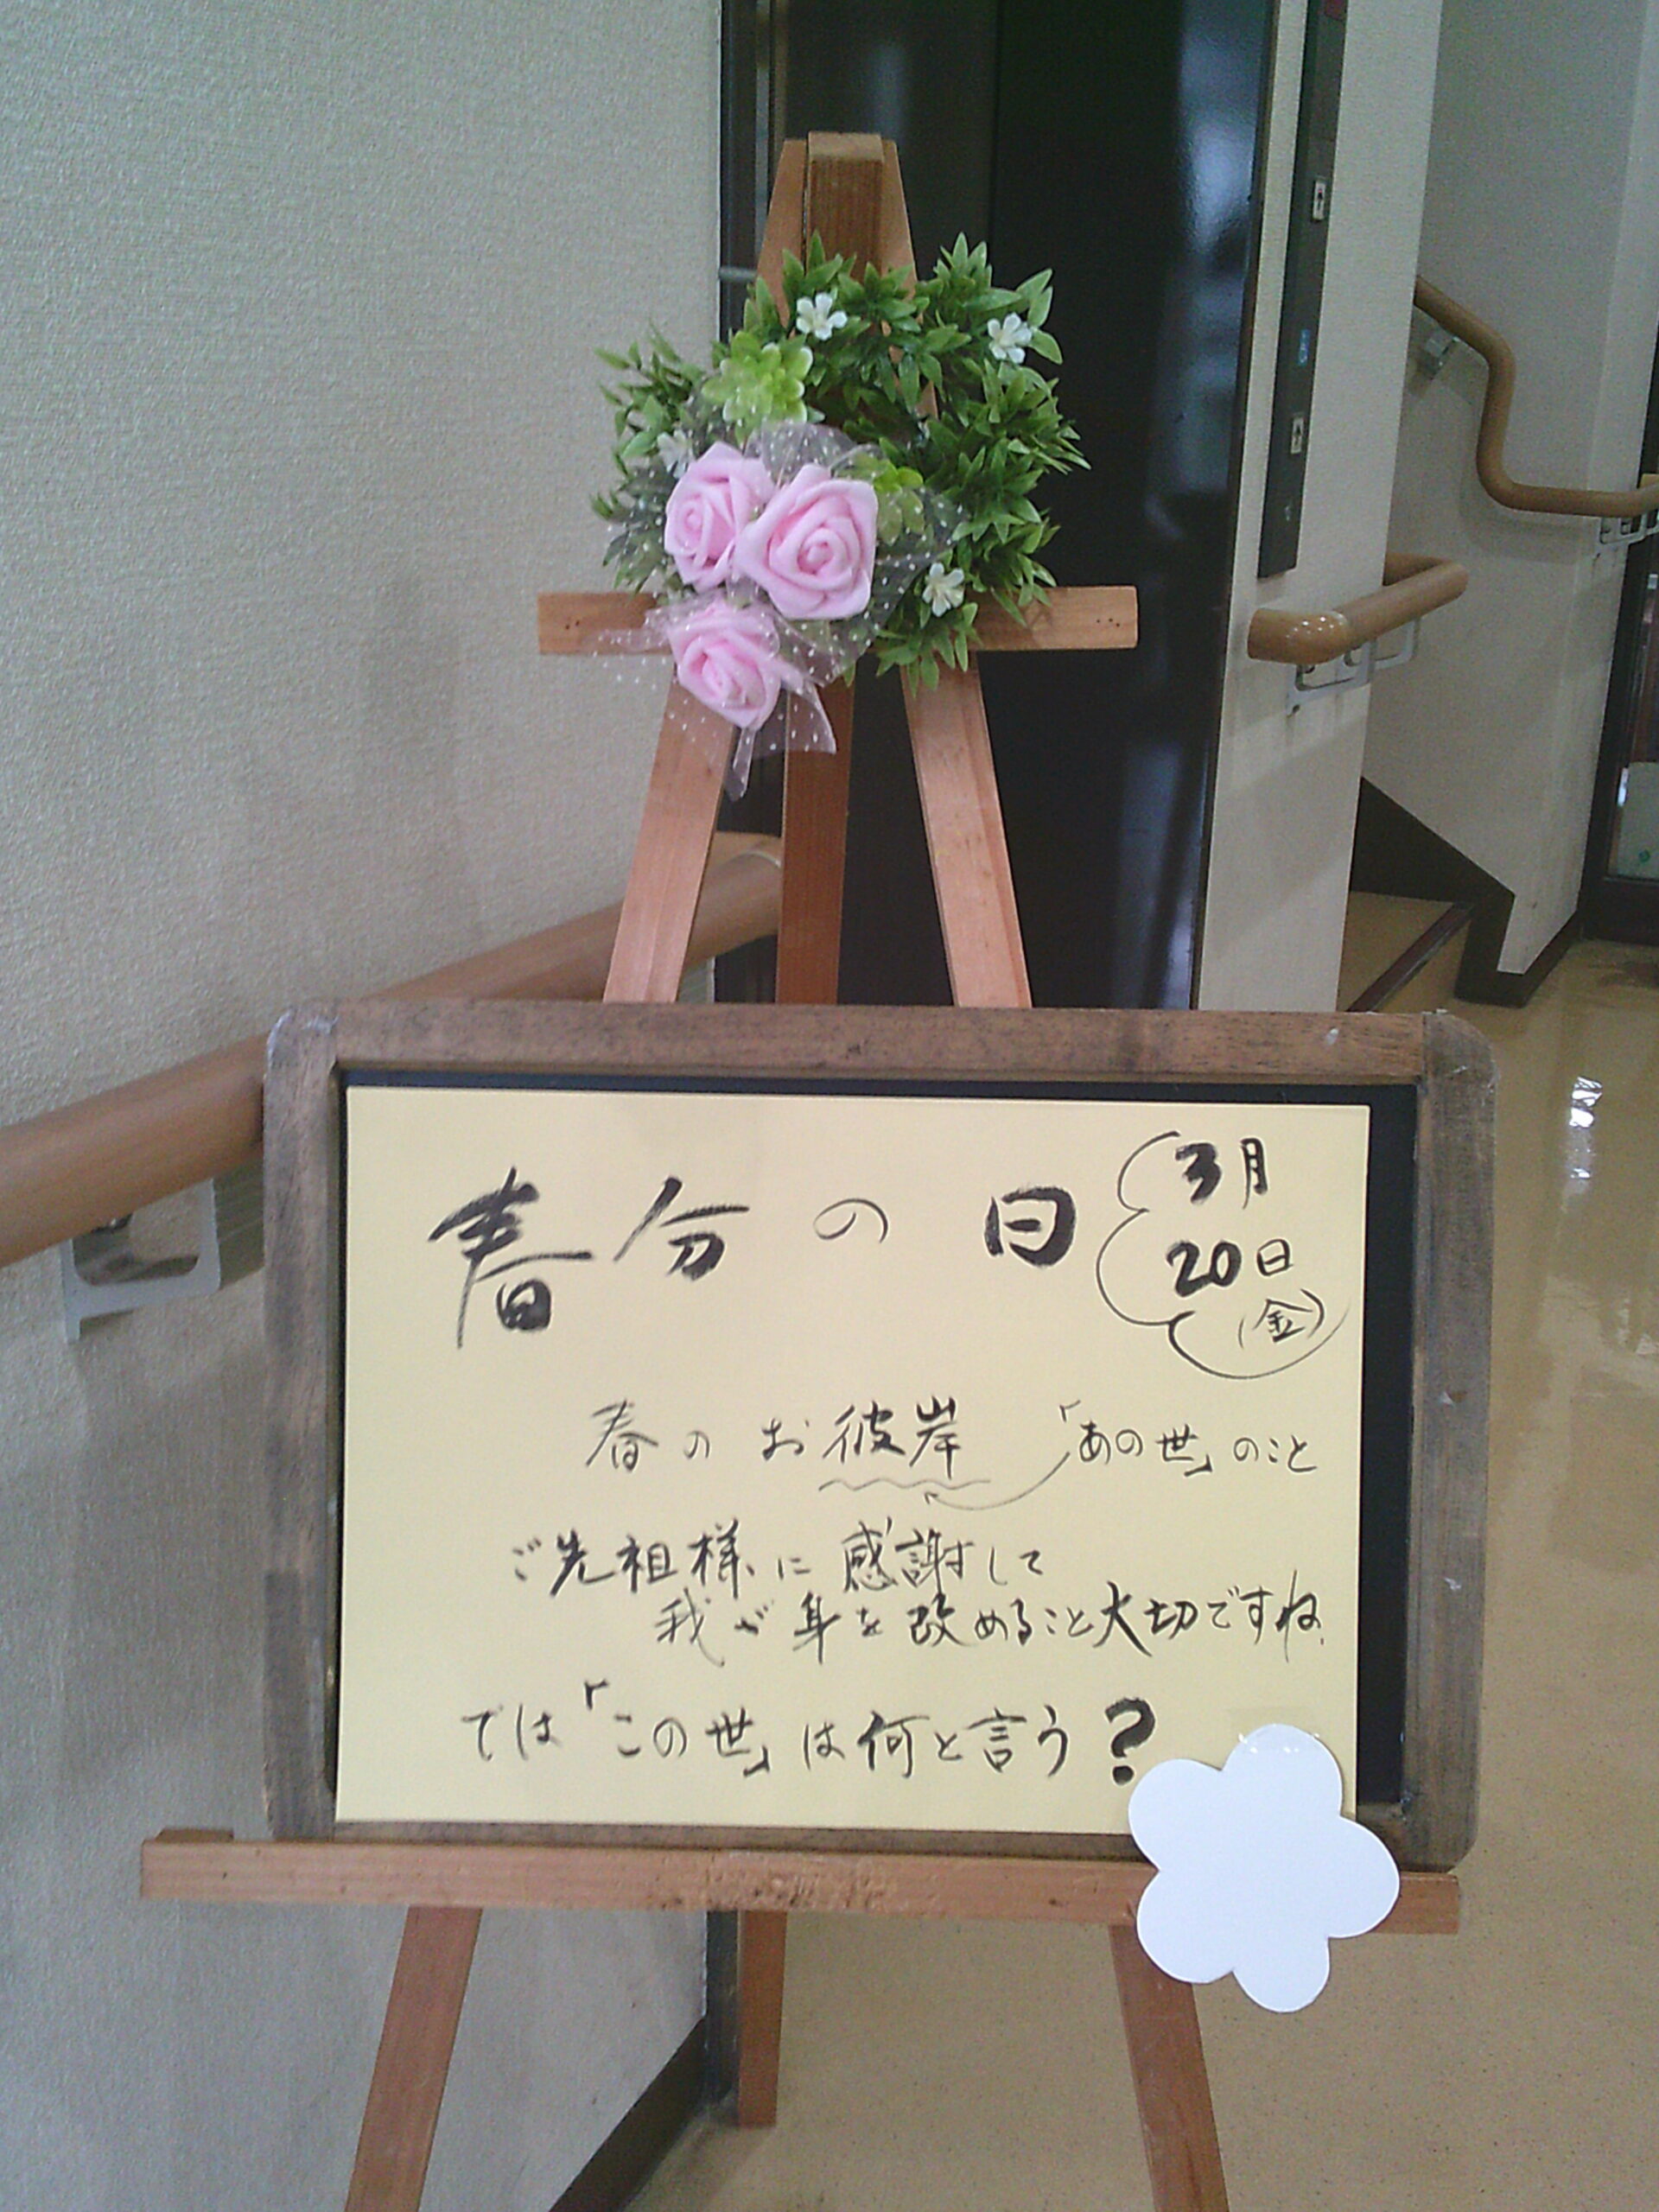 春分の日
3月
20日
(金)
春のお彼岸 「あの世」のこと
ご先祖様に感謝して
我が身を改めること大切ですね
では「この世」は何と言う?